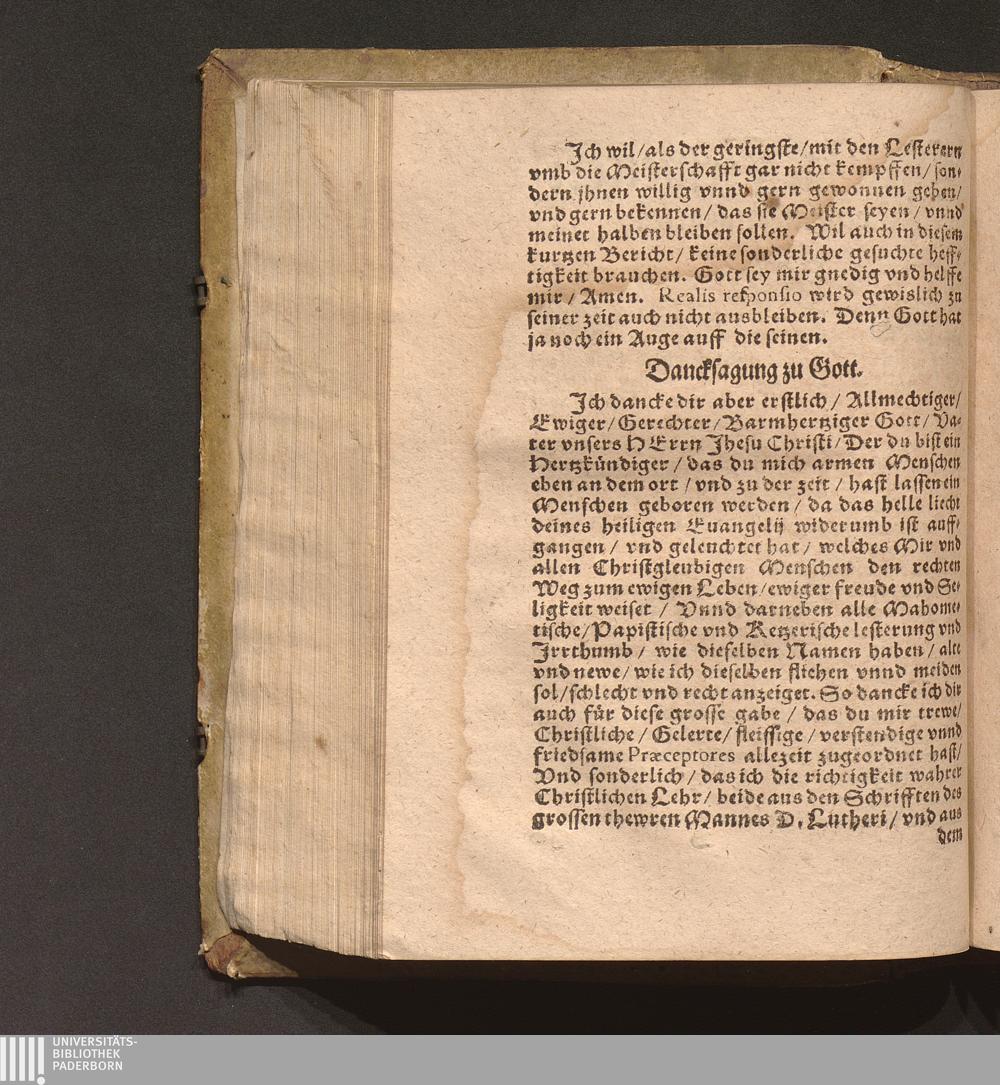 Ich wil / als der geringste / mit den Lesterern
vmb die Meisterschafft gar nicht kempffen / son-
dern jhnen willig vnnd gern gewonnen geben /
vnd gern bekennen / das sie Meister seyen / vnnd
meinet halben bleiben sollen. Wil auch in diesem
kurtzen Bericht / keine sonderliche gesuchte heff-
tigkeit brauchen. Gott sey mir gnedig vnd helffe
mir / Amen. Realis responsio wird gewislich zu
seiner zeit auch nicht ausbleiben. Denn Gott hat
ja noch ein Auge auff die seinen.
Dancksagung zu Gott.
Ich dancke dir aber erstlich / Allmechtiger /
Ewiger / Gerechter / Barmhertziger Gott / Va-
ter vnsers HErrn Jhesu Christi / Der du bist ein
Hertzkündiger / das du mich armen Menschen
eben an dem ort / vnd zu der zeit / hast lassen ein
Menschen geboren werden / da das helle liecht
deines heiligen Euangelij widerumb ist auff-
gangen / vnd geleuchtet hat / welches Mir vnd
allen Christgleubigen Menschen den rechten
Weg zum ewigen Leben / ewiger freude vnd Se-
ligkeit weiset / Vnnd darneben alle Mahome-
tische / Papistische vnd Ketzerische lesterung vnd
Jrrthumb / wie dieselben Namen haben / alte
vnd newe / wie ich dieselben fliehen vnnd meiden
sol / schlecht vnd recht anzeiget. So dancke ich dir
auch für diese grosse gabe / das du mir trewe /
Christliche / Gelerte / fleissige / verstendige vnnd
friedsame Præceptores allezeit zugeordnet hast /
Vnd sonderlich / das ich die richtigkeit wahrer
Christlichen Lehr / beide aus den Schrifften des
grossen thewren Mannes D. Lutheri / vnd aus
dem
UNIVERSITÄTS-
BIBLIOTHEK
PADERBORN